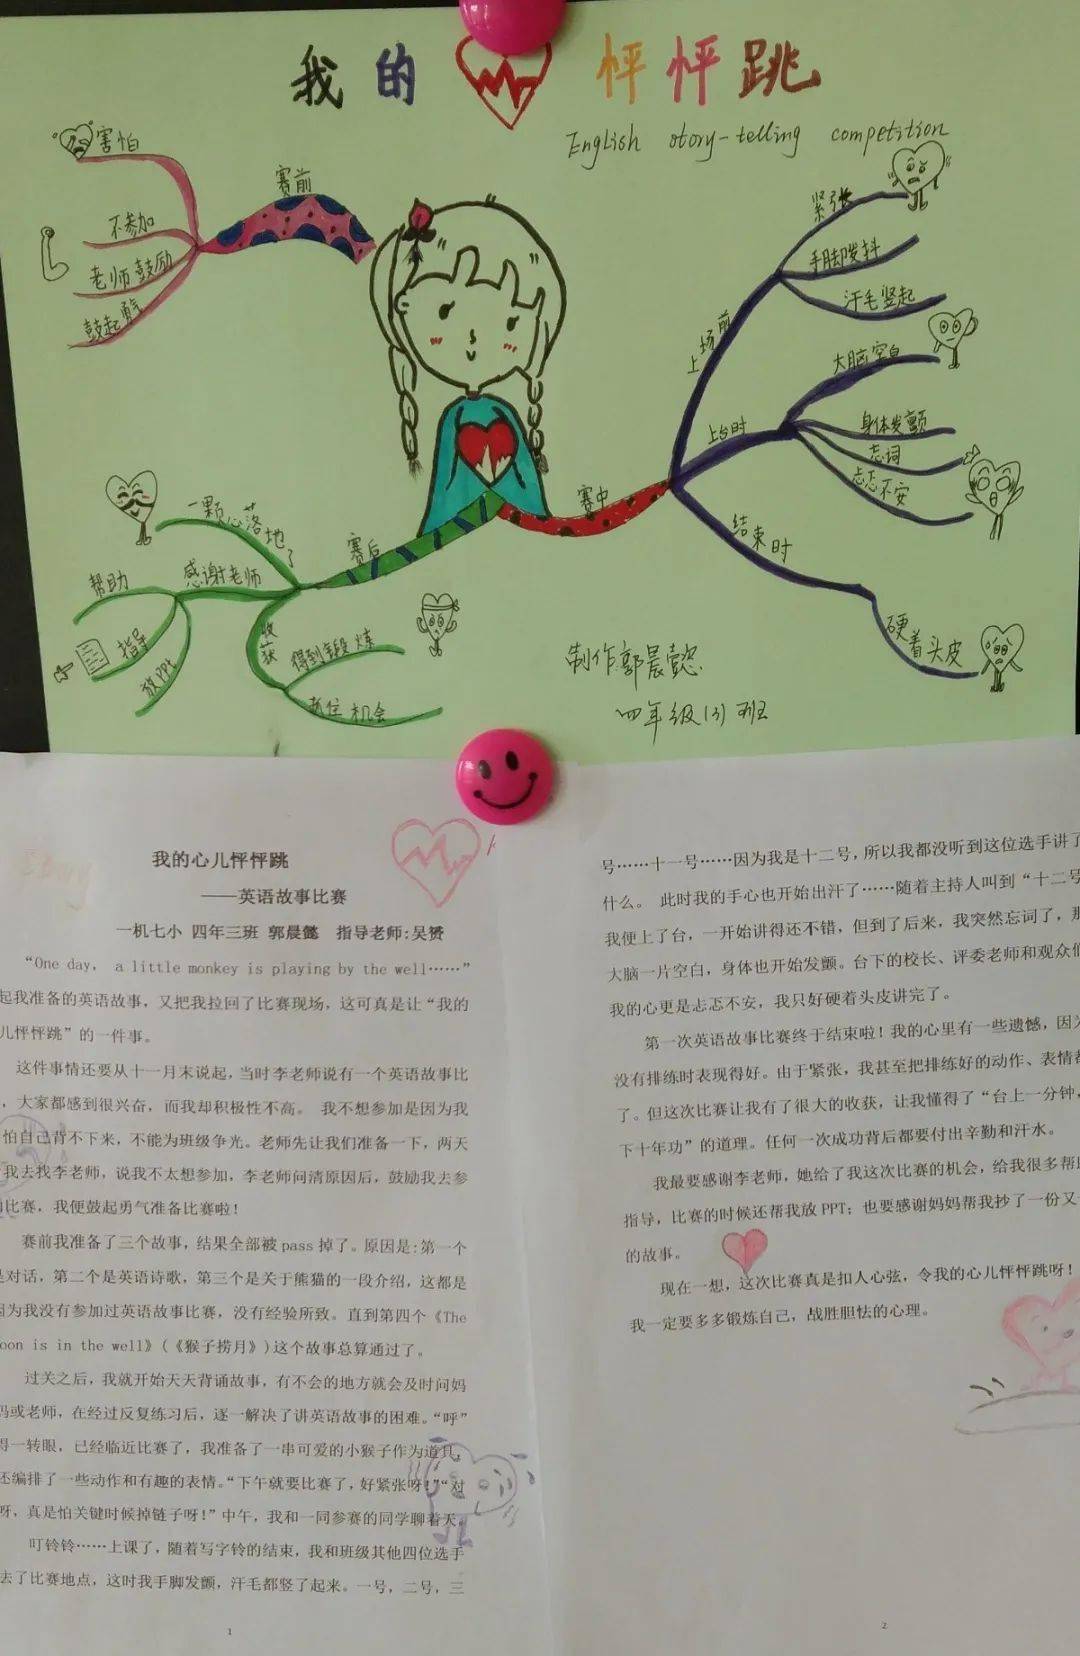 我的 怦怦跳
English story-telling competition
赛前
害怕
不参加
老师鼓励
鼓起勇气
赛中
上场前
紧张
手脚发抖
汗毛竖起
上台时
大脑空白
身体发颤
忘词
忐忑不安
结束时
硬着头皮
赛后
一颗心落地了
感谢老师
帮助
指导
放PPt
收获
得到锻炼
抓住机会
制作郭晨懿
四年级(3)班
我的心儿怦怦跳
——英语故事比赛
一机七小 四年三班 郭晨懿 指导老师:吴赟
“One day, a little monkey is playing by the well……”
起我准备的英语故事，又把我拉回了比赛现场，这可真是让“我的
儿怦怦跳”的一件事。
这件事情还要从十一月末说起，当时李老师说有一个英语故事比
，大家都感到很兴奋，而我却积极性不高。 我不想参加是因为我
怕自己背不下来，不能为班级争光。老师先让我们准备一下，两天
我去找李老师，说我不太想参加，李老师问清原因后，鼓励我去参
比赛，我便鼓起勇气准备比赛啦！
赛前我准备了三个故事，结果全部被 pass 掉了。原因是:第一个
是对话，第二个是英语诗歌，第三个是关于熊猫的一段介绍，这都是
因为我没有参加过英语故事比赛，没有经验所致。直到第四个《The
oon is in the well》(《猴子捞月》)这个故事总算通过了。
过关之后，我就开始天天背诵故事，有不会的地方就会及时问妈
妈或老师，在经过反复练习后，逐一解决了讲英语故事的困难。“呼”
得一转眼，已经临近比赛了，我准备了一串可爱的小猴子作为道具，
还编排了一些动作和有趣的表情。“下午就要比赛了，好紧张呀！”“对
呀，真是怕关键时候掉链子呀！”中午，我和一同参赛的同学聊着天。
叮铃铃……上课了，随着写字铃的结束，我和班级其他四位选手
去了比赛地点，这时我手脚发颤，汗毛都竖了起来。一号，二号，三
1
号……十一号……因为我是十二号，所以我都没听到这位选手讲了
什么。 此时我的手心也开始出汗了……随着主持人叫到“十二号
我便上了台，一开始讲得还不错，但到了后来，我突然忘词了，那
大脑一片空白，身体也开始发颤。台下的校长、评委老师和观众们
我的心更是忐忑不安，我只好硬着头皮讲完了。
第一次英语故事比赛终于结束啦！我的心里有一些遗憾，因为
没有排练时表现得好。由于紧张，我甚至把排练好的动作、表情都
了。但这次比赛让我有了很大的收获，让我懂得了“台上一分钟，
下十年功”的道理。任何一次成功背后都要付出辛勤和汗水。
我最要感谢李老师，她给了我这次比赛的机会，给我很多帮助
指导，比赛的时候还帮我放 PPT；也要感谢妈妈帮我抄了一份又一
的故事。
现在一想，这次比赛真是扣人心弦，令我的心儿怦怦跳呀！
我一定要多多锻炼自己，战胜胆怯的心理。
2